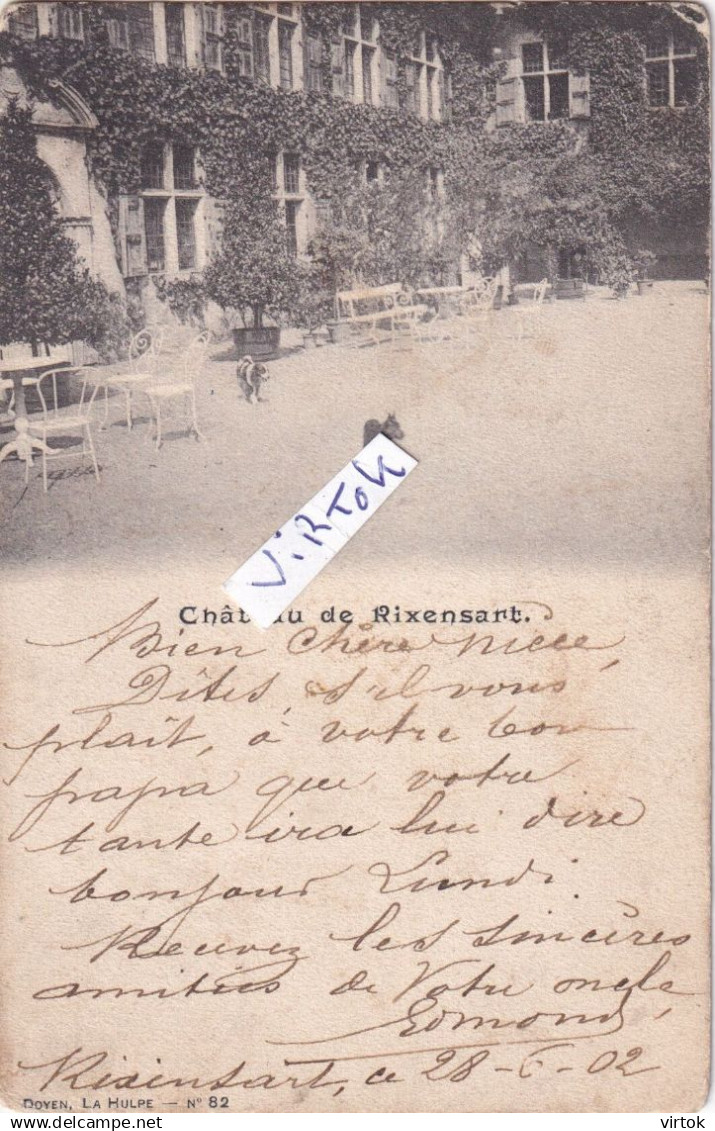 ViRTOK
Château de Rixensart.
Bien chère nièce,
Dîtes, s'il vous
plaît, à votre bon
papa que votre
tante ira lui dire
bonjour Lundi.
Recevez les sincères
amitiés de Votre oncle,
Edmond
Rixensart, ce 28-6-02
DOYEN, LA HULPE — Nº 82
virtok